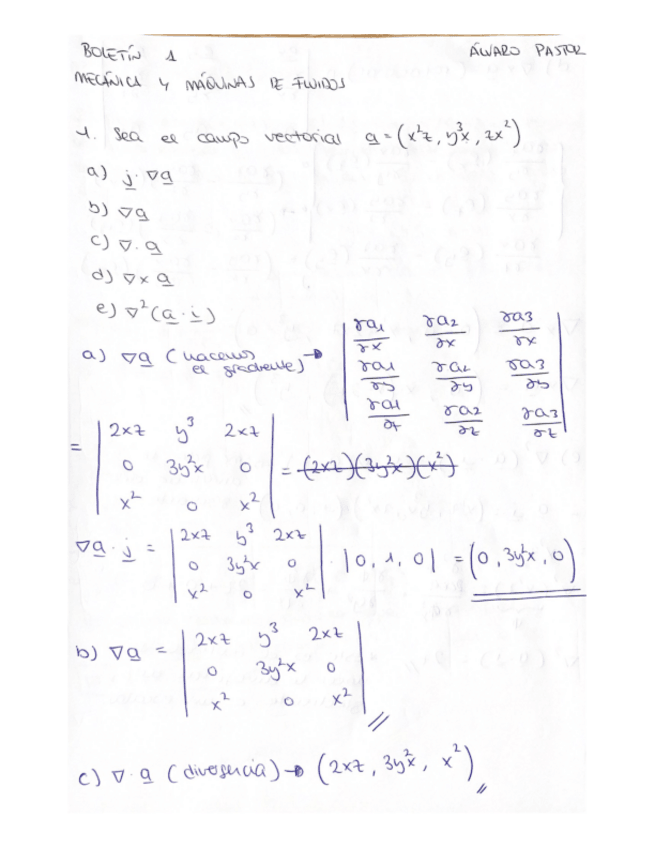 BOLETÍN 1 ÁLVARO PASTOR
MECÁNICA Y MÁQUINAS DE FLUIDOS
1. Sea el campo vectorial a = (x²z, y³x, zx²)
a) j · ∇a
b) ∇a
c) ∇ · a
d) ∇ x a
e) ∇²(a · i)
a) ∇a (hacemos el gradiente) → | ∂a1/∂x ∂a2/∂x ∂a3/∂x |
| ∂a1/∂y ∂a2/∂y ∂a3/∂y |
| ∂a1/∂z ∂a2/∂z ∂a3/∂z |
= | 2xz y³ 2xz |
| 0 3y²x 0 | = (2xz)(3y²x)(x²)
| x² 0 x² |
∇a · j = | 2xz y³ 2xz |
| 0 3y²x 0 | · |0, 1, 0| = (0, 3y²x, 0)
| x² 0 x² |
b) ∇a = | 2xz y³ 2xz |
| 0 3y²x 0 |
| x² 0 x² | //
c) ∇ · a (divergencia) → (2xz, 3y²x, x²) //